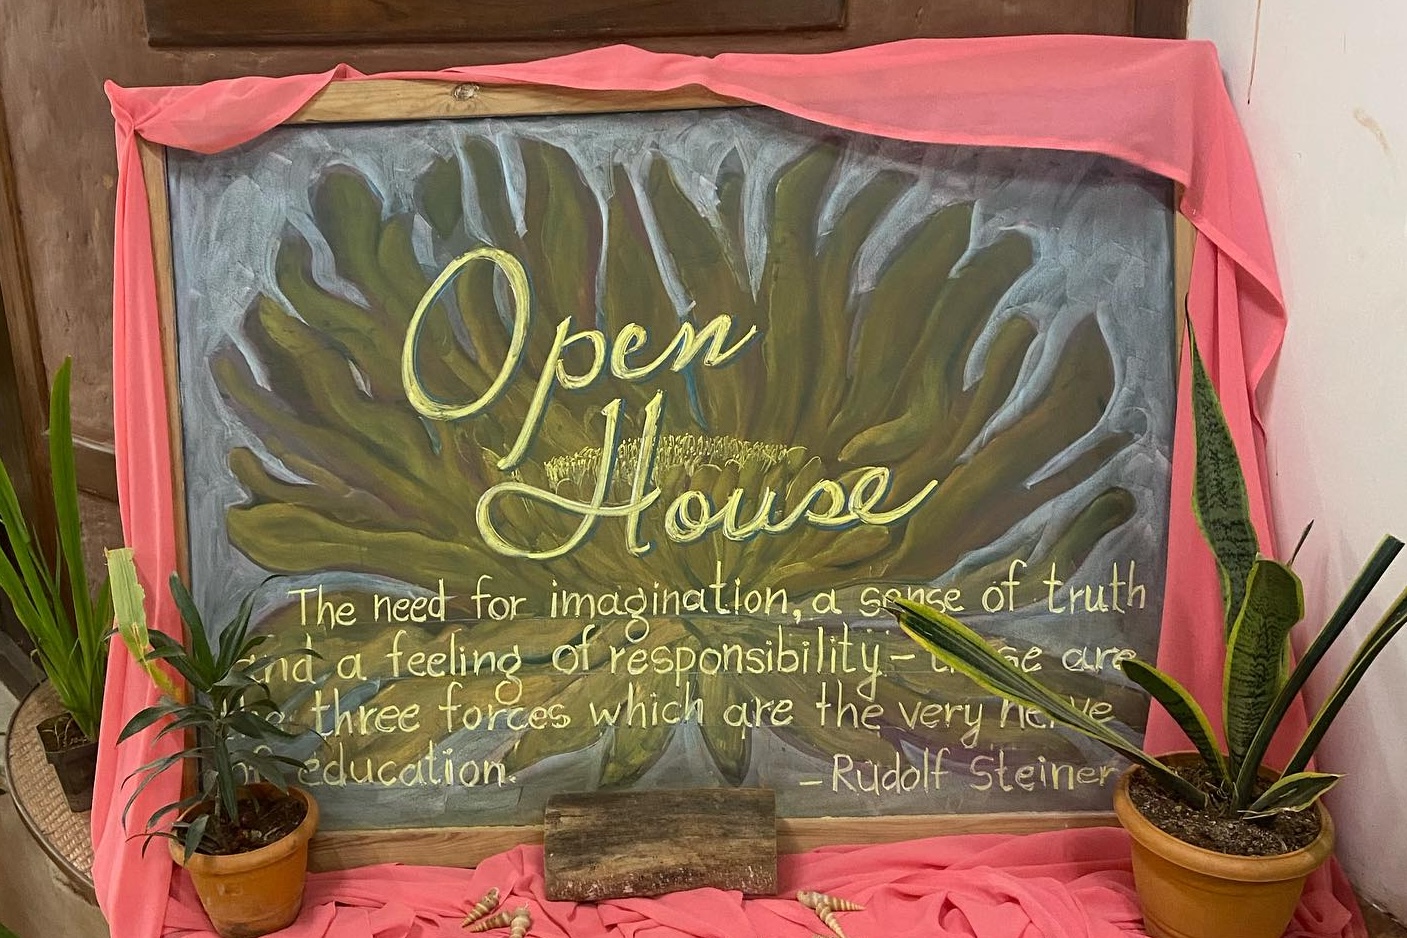 Open
House
The need for imagination, a sense of truth
and a feeling of responsibility – these are
the three forces which are the very nerve
of education.
– Rudolf Steiner